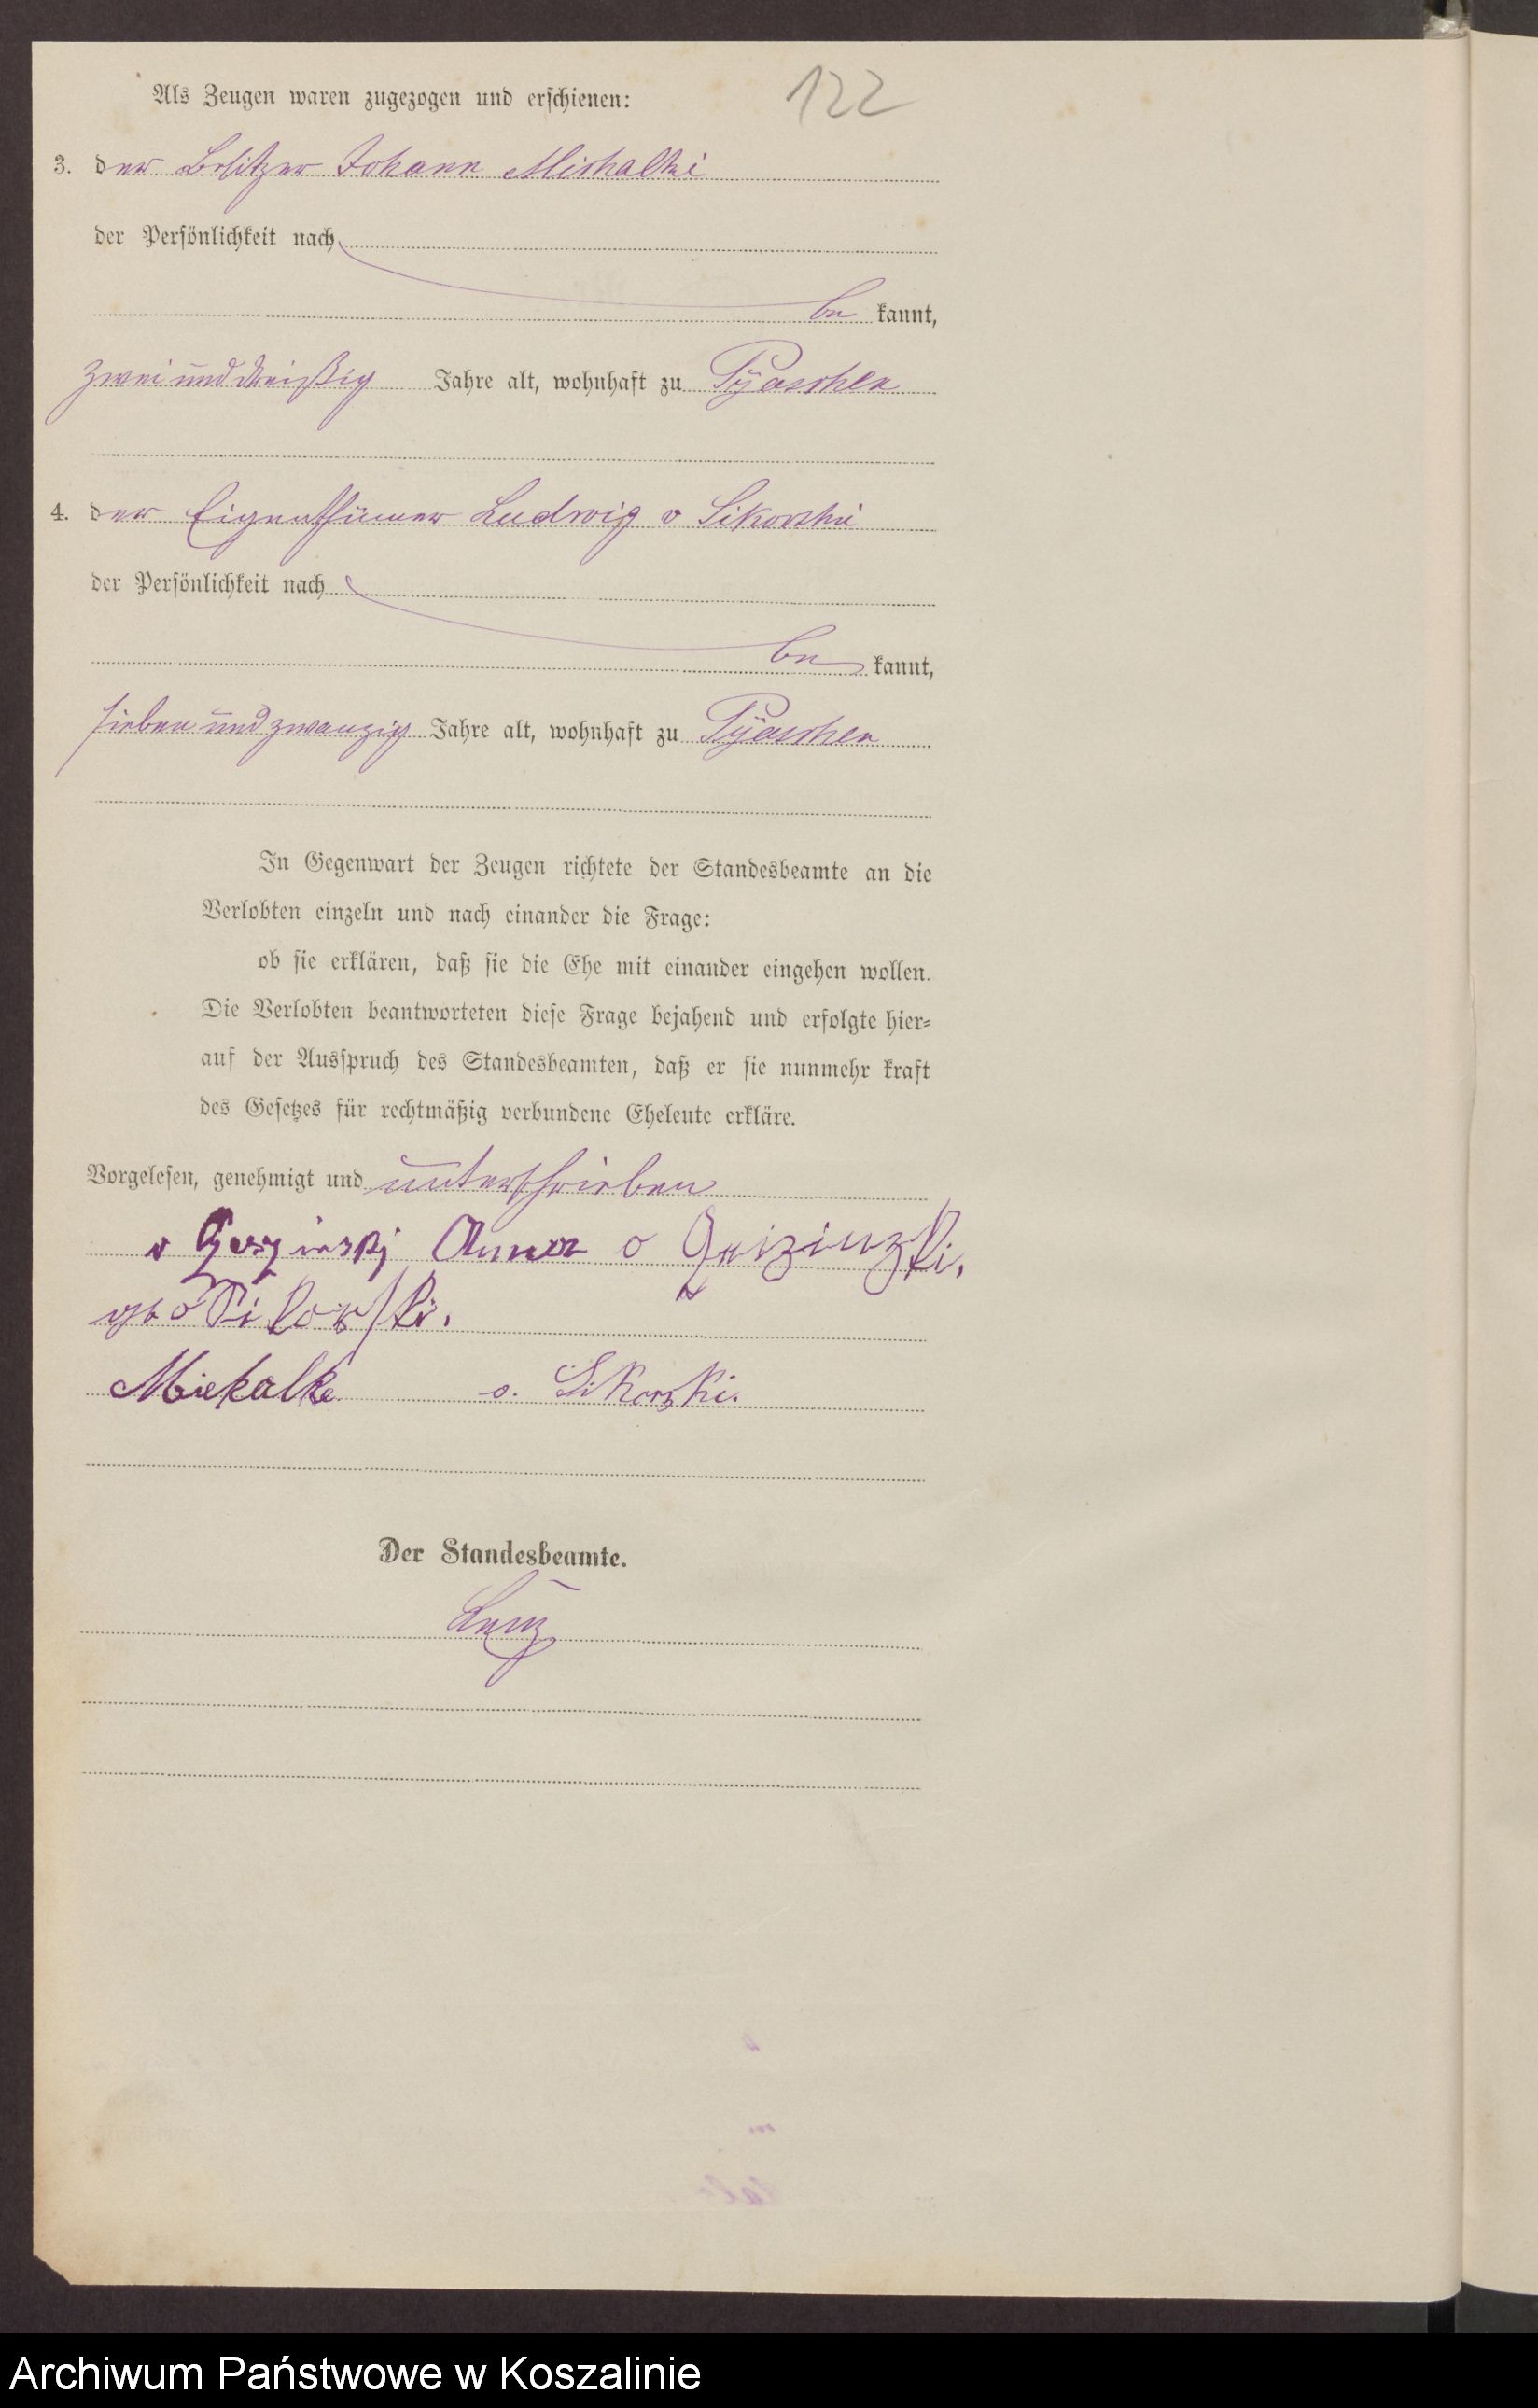 122
Als Zeugen waren zugezogen und erschienen:
3. der Besitzer Johann
der Persönlichkeit nach
be kannt,
zwei und dreißig Jahre alt, wohnhaft zu Pyaschen
4. der Eigenthümer Ludwig v Sikorski
der Persönlichkeit nach
be kannt,
sieben und zwanzig Jahre alt, wohnhaft zu Pyaschen
In Gegenwart der Zeugen richtete der Standesbeamte an die
Verlobten einzeln und nach einander die Frage:
ob sie erklären, daß sie die Ehe mit einander eingehen wollen.
Die Verlobten beantworteten diese Frage bejahend und erfolgte hier-
auf der Ausspruch des Standesbeamten, daß er sie nunmehr kraft
des Gesetzes für rechtmäßig verbundene Eheleute erkläre.
Vorgelesen, genehmigt und unterschrieben
Anna v
v. Sikorski.
Der Standesbeamte.
Archiwum Państwowe w Koszalinie